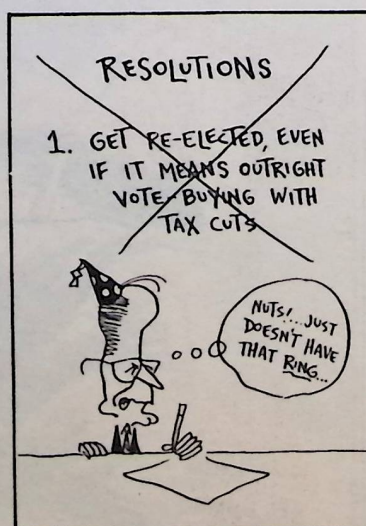 RESOLUTIONS
1. GET RE-ELECTED, EVEN
IF IT MEANS OUTRIGHT
VOTE-BUYING WITH
TAX CUTS
NUTS!...JUST
DOESN'T HAVE
THAT RING...